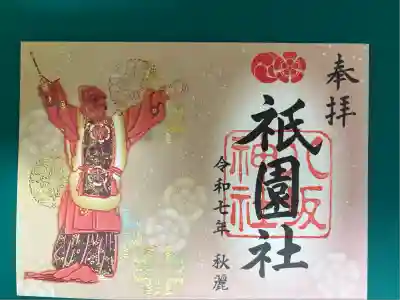 奉拝
祇園社
八坂神社
令和七年 秋麗